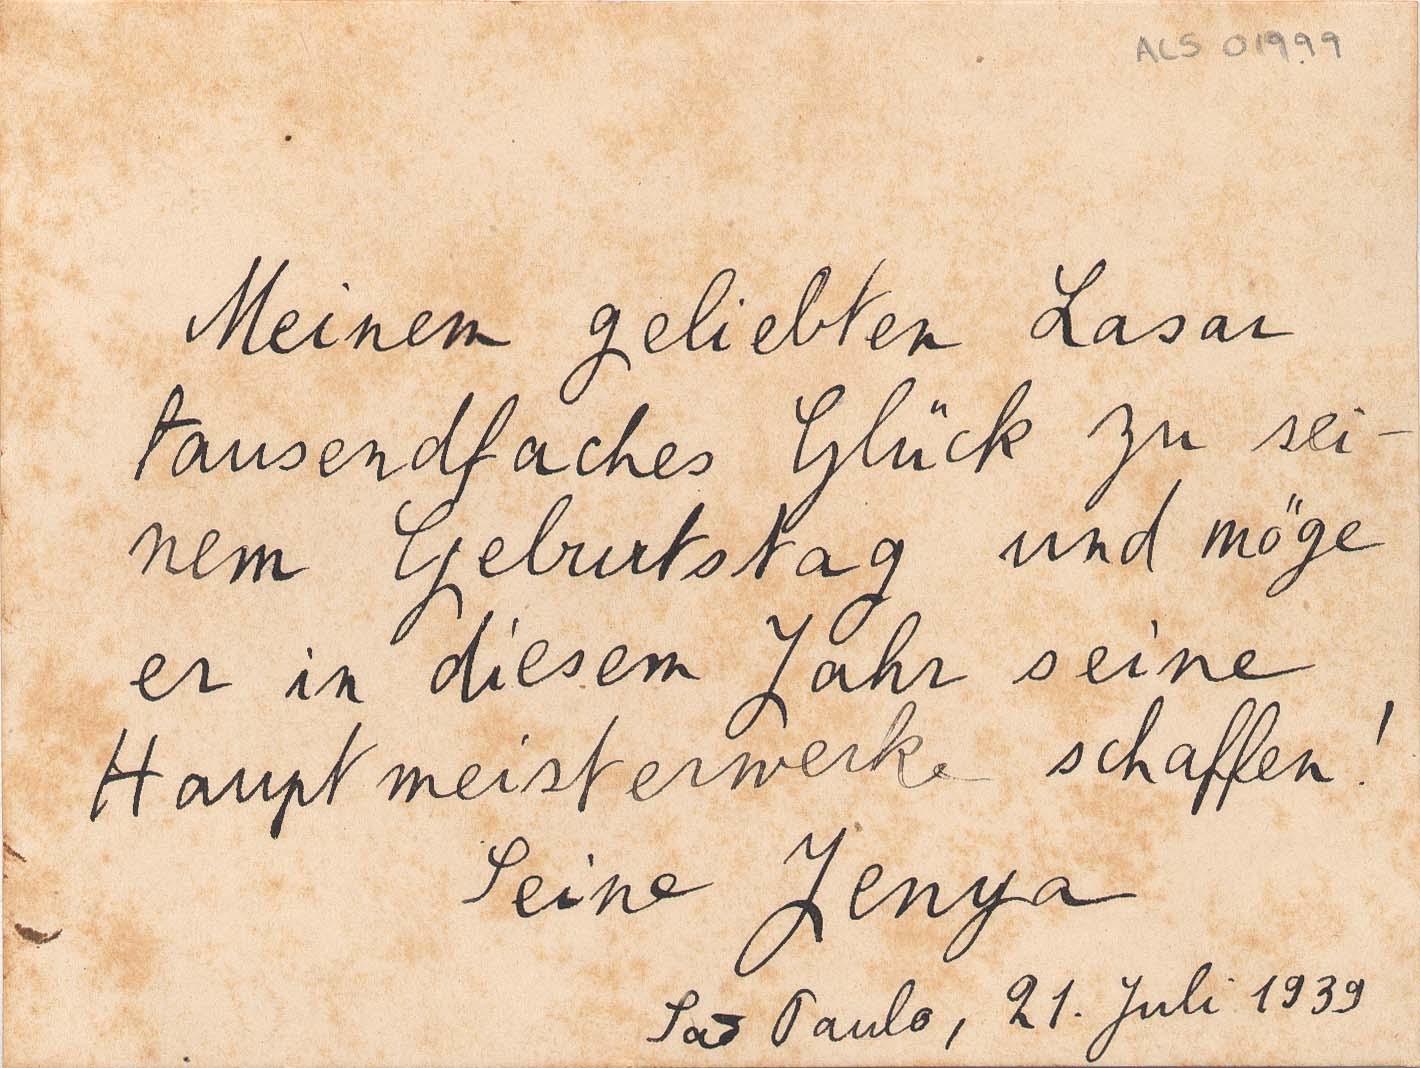 ALS 01999
Meinem geliebten Lasar
tausendfaches Glück zu sei-
nem Geburtstag und möge
er in diesem Jahr seine
Hauptmeisterwerke schaffen!
Seine Jenya
Saõ Paulo, 21. Juli 1939